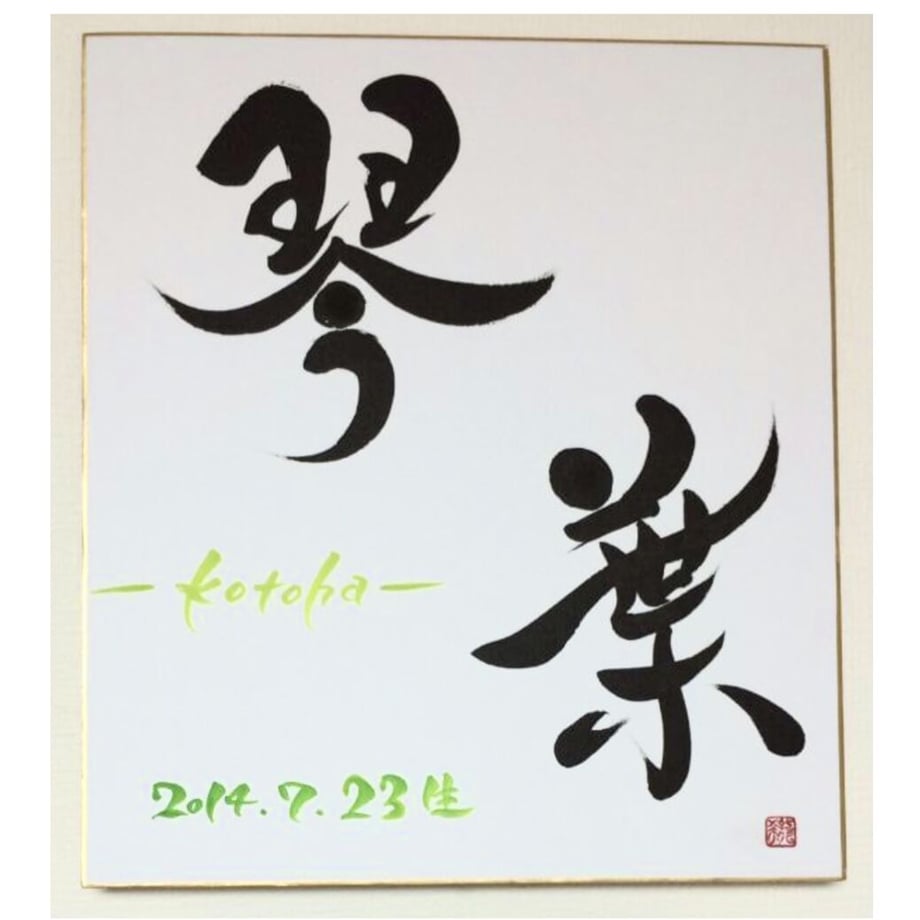 琴
葉
－kotoha－
2014.7.23生